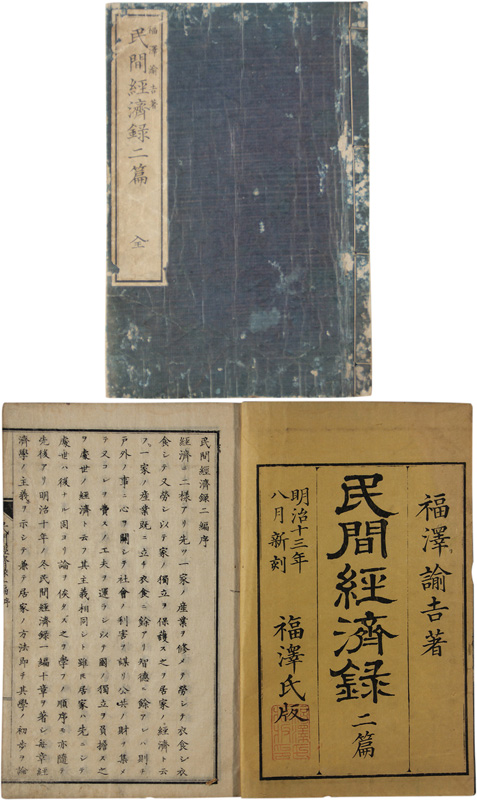 福澤諭吉著
民間經濟録二篇
全
福澤諭吉著
民間經濟録 二篇
明治十三年
八月新刻
福澤氏版
民間經濟録二編序
經濟ニ二樣アリ先ツ一家ノ産業ヲ修メテ勞シテ衣食シ衣
食シテ又勞シ以テ家ノ獨立ヲ保護スル之ヲ居家ノ經濟ト云
フ一家ノ産業既ニ立チ衣食ニ餘アリ智德ニ餘アレハ則チ
戸外ノ事ニ心ヲ關シテ社會ノ利害ヲ謀リ公共ノ財ヲ集メ
テ又コレヲ費スノ工夫ヲ運ラシ以テ國ノ獨立ヲ負擔スル之
ヲ處世ノ經濟ト云フ其主義相同シト雖𪜈居家ハ先ニシテ
處世ハ後ナル固ヨリ論ヲ俟タス之ヲ學フノ順序モ亦隨テ
先後アリ明治十年ノ冬民間經濟録一編十章ヲ著シ每章經
濟學ノ主義ヲ示シテ兼テ居家ノ方法即チ其學ノ初歩ヲ論